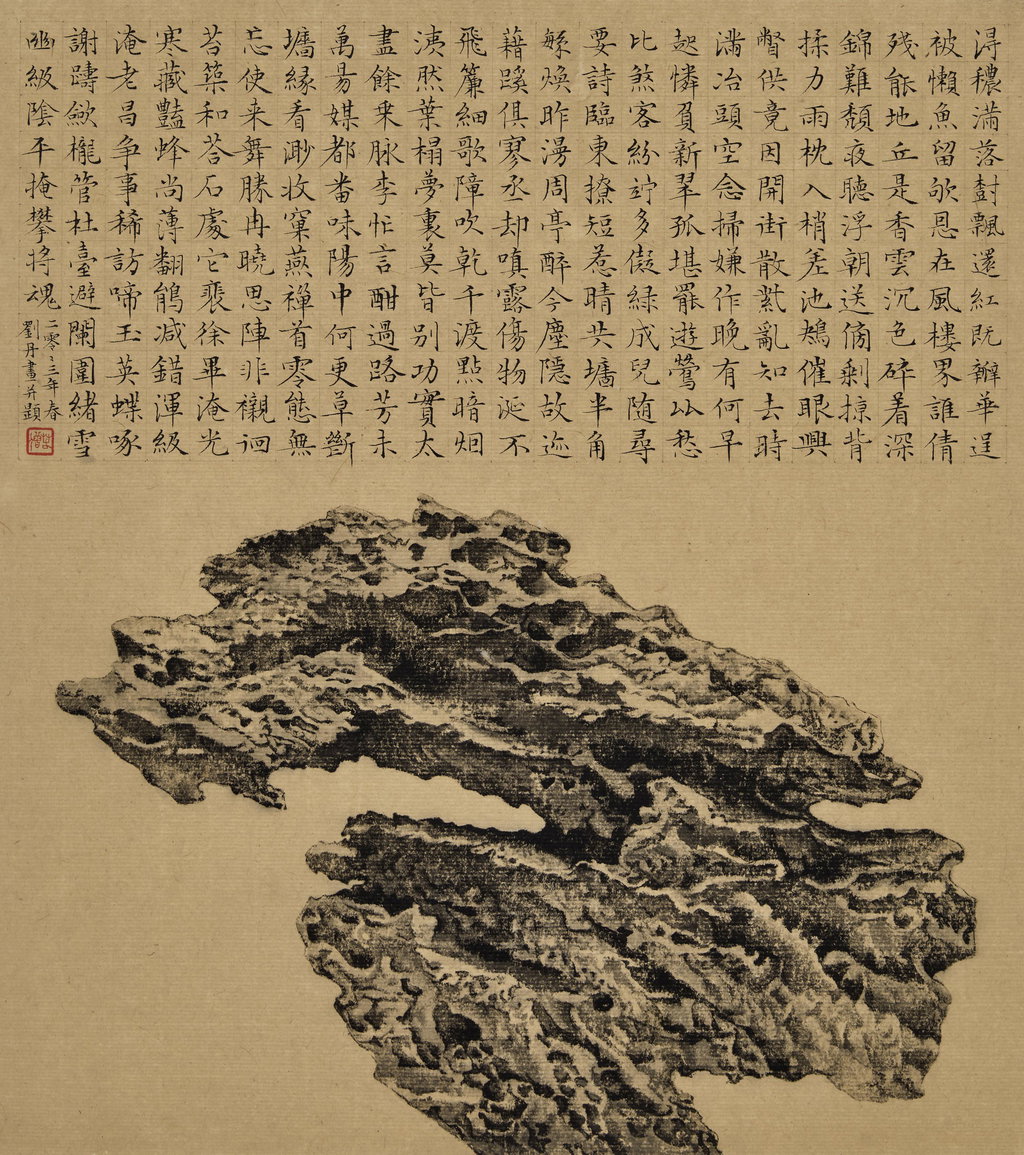 淂穠满落尌飄還紅既辦華逞
被懶魚留欨恩在風樓界誰倩
残能地丘是香雲沉色碎着深
錦難頽夜聴浮朝送傍剩掠背
揉力雨枕入梢差池鴆催眼興
瞥供竟因開街散紫亂知去時
满冶頭空念掃嫌作晚有何早
起憐負新翠孤堪罷遊鶯以愁
比煞客紛竚多儗緑成兒随尋
要詩臨東撩短惹晴共墻半角
煥昨漫周亭醉今塵隠故迹
藉蹊俱寥丞却嗔露傷物涎不
飛簾細歌障吹乾千渡點暗烟
湊然葉榻夢裏莫皆别功實太
盡餘乗脉李怅言酣過路芳未
萬易媒都畨味陽中何更草斷
墻縁看渺收窠燕禪首零態無
忘使来舞勝冉曉思陣非襯徊
苔築和苔石處它裵徐畢淹光
寒藏豔蜂尚薄翻鵃减錯渾級
淹老昌争事稀訪啼玉英蝶啄
謝躊歛櫳管杜臺避闌圍緒雪
幽級陰平掩攀将魂
二零二三年春
劉丹畫并題